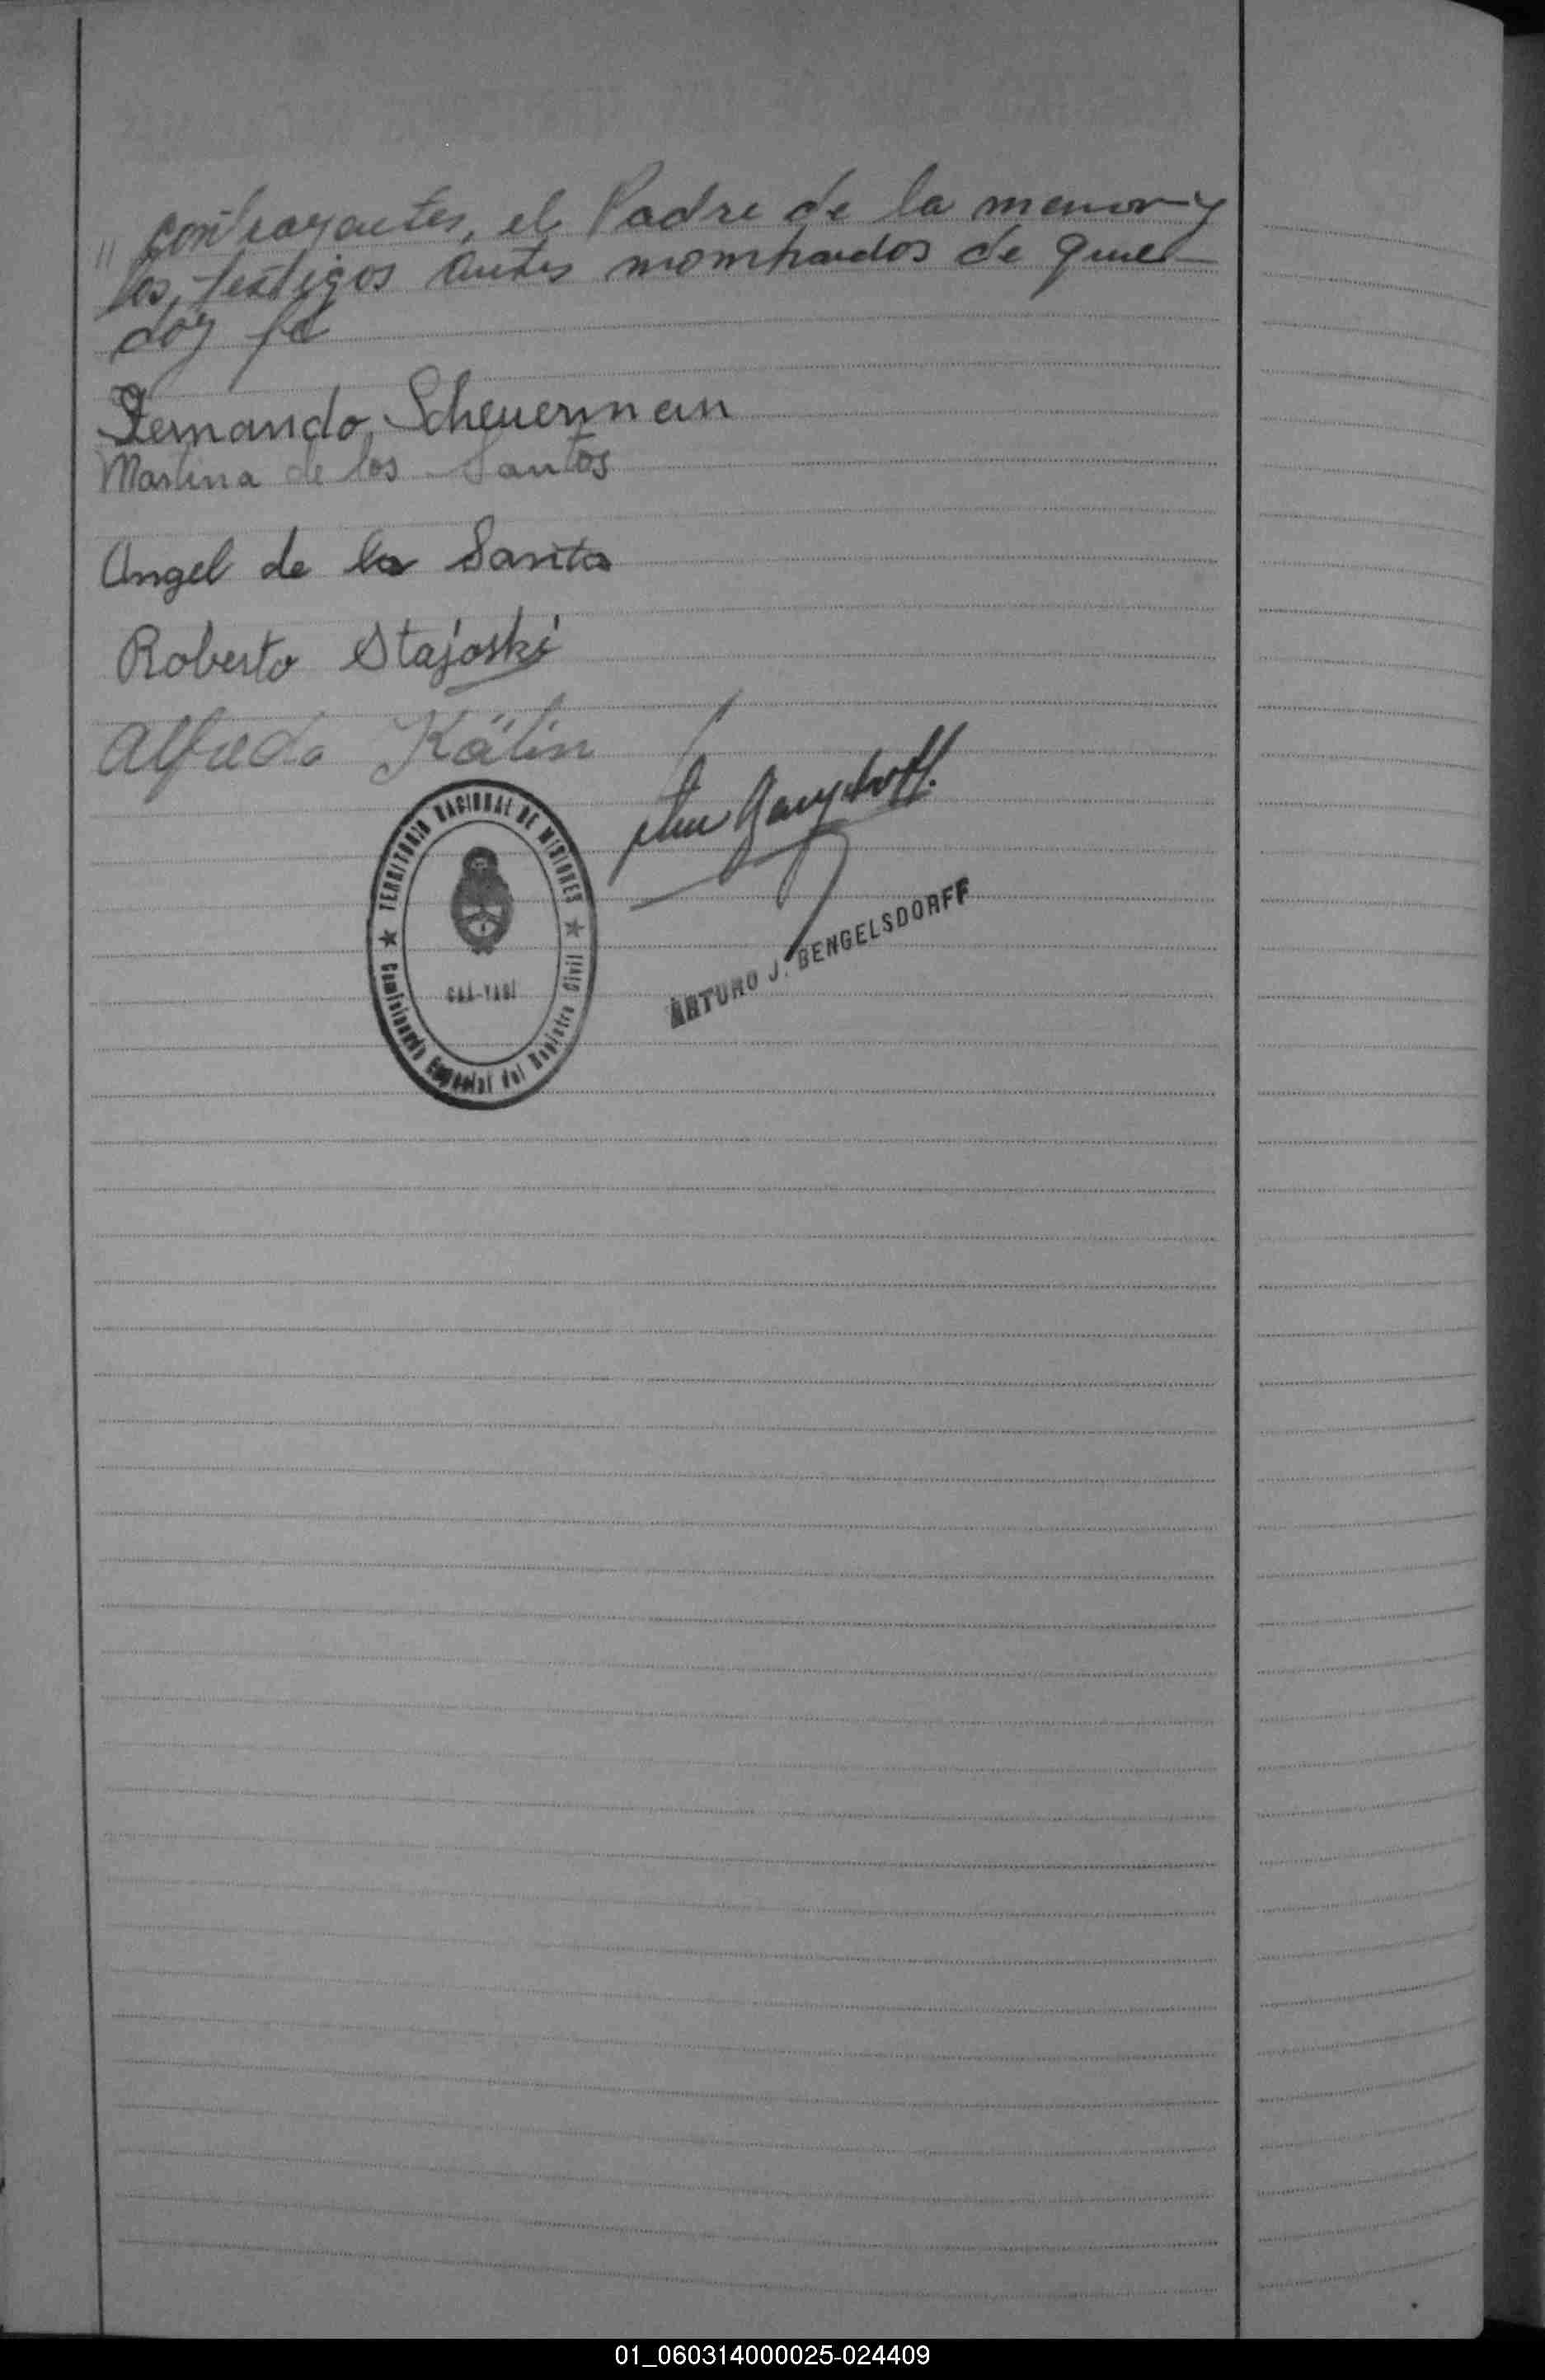 " contrayentes, el Padre de la menor y
los, testigos antes nombrados de que
doy fé
Fernando Scheuerman
Martina de los Santos
Angel de los Santos
Roberto Stajoski
Alfredo Kälin
TERRITORIO NACIONAL DE MISIONES
CAA-YARÍ
Comisionado Especial del Registro Civil
ARTURO J. BENGELSDORFF
01_060314000025-024409